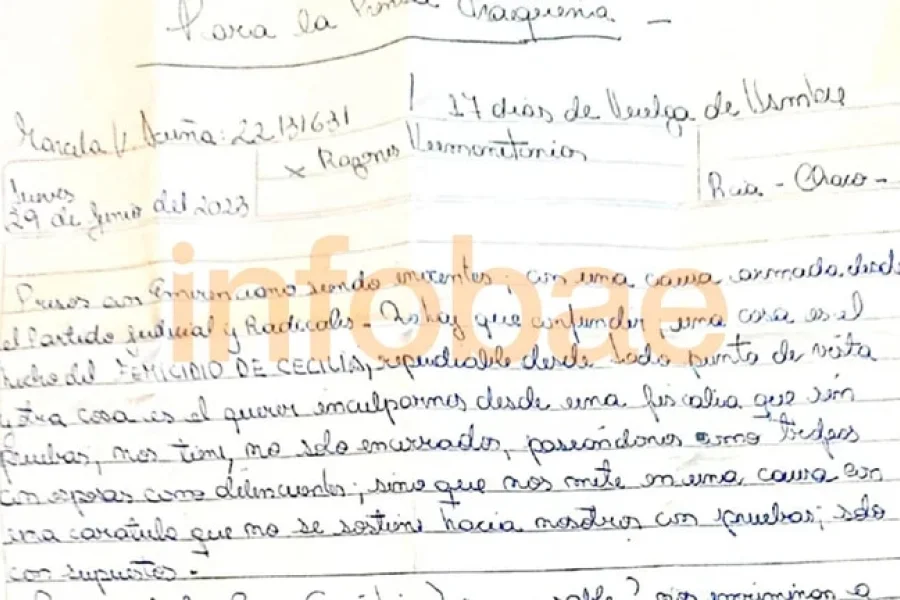 Para la Prensa Chaqueña -
17 dias de Huelga de Hambre
Marcela V. Acuña: 22131631
x Razones Humanitarias
Jueves
29 de Junio del 2023
Rcia - Chaco -
infobae
Presos con Emerenciano siendo inocentes; con una causa armada desde
el Partido judicial y Radicales - No hay que confundir, una cosa es el
hecho del FEMICIDIO DE CECILIA, repudiable desde todo punto de vista
y otra cosa es el querer inculparnos desde una fiscalia que sin
pruebas, nos tiene, no solo encerrados, paseandonos como trofeos
con esposas como delincuentes; sino que nos mete en una causa con
una caratula que no se sostiene hacia nosotros con pruebas; solo
con supuestos -
nos incriminan a